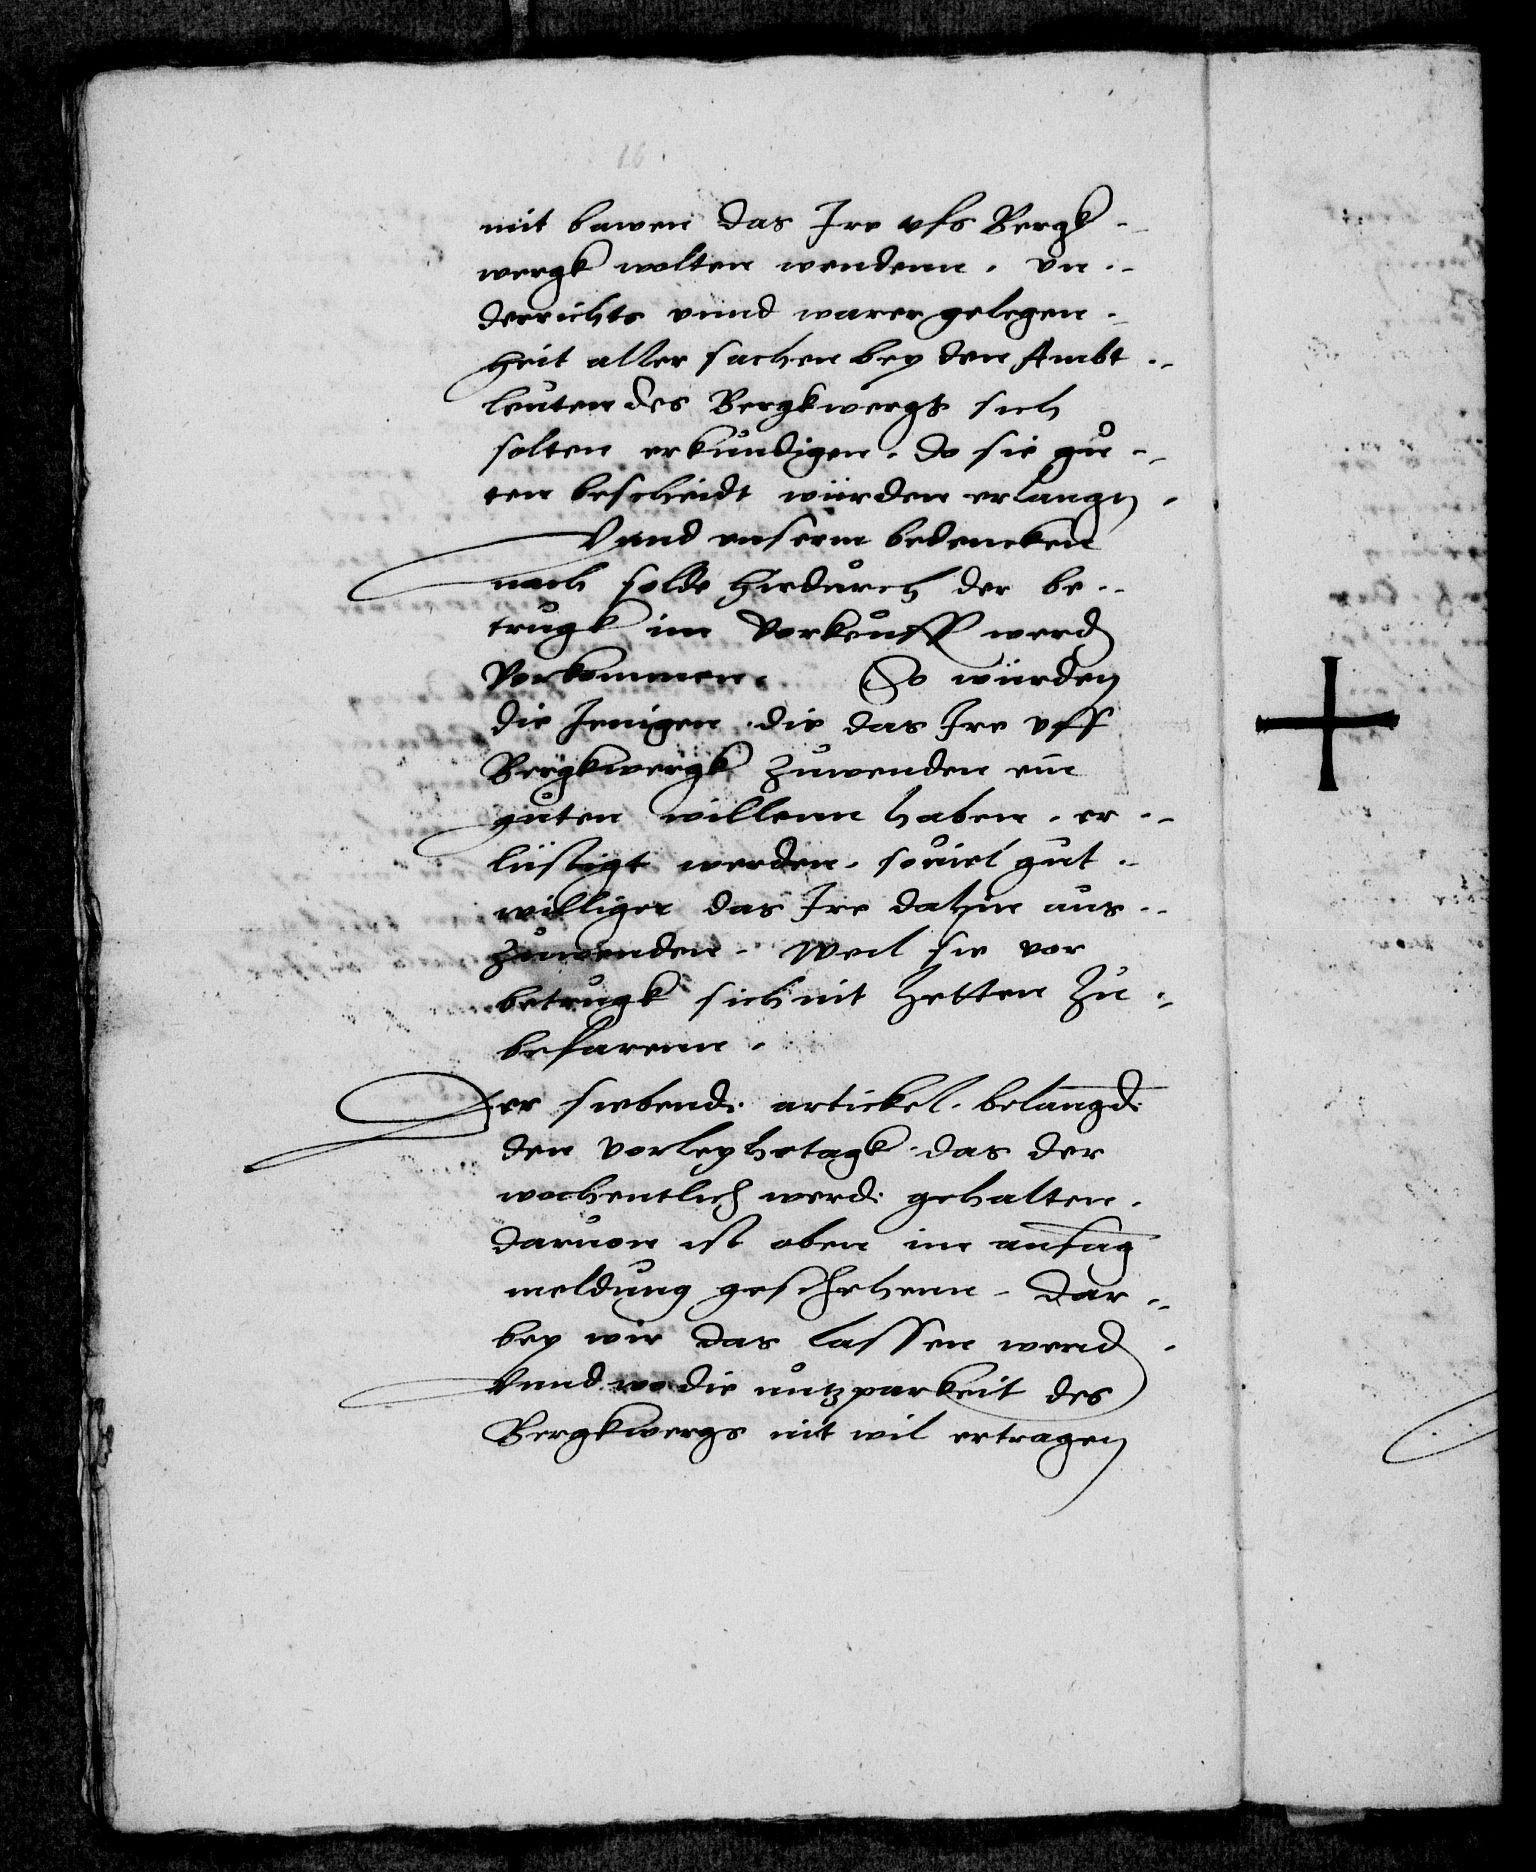 16
mit bawen das Ire vfs Bergk-
wergk wolten wendenn. vn-
derrichts vnnd warer gelegen-
heit aller sachen bey den Ambt-
leuten des Bergkwergks sich
solten erkundigen. do sie gu-
ten bescheidt würden erlangn.
Vnnd vnserm bedencken
nach solde hirdurch der be-
trugk im Vorkeuff werd
Vorkommen. So würden
die Jenigen die das Ire vff
Bergkwergk zuwenden ein
guten willenn haben. er-
lüstigt werden. souiel gut-
williger das Ire dahin aus-
zuwenden. Weil sie vor
betrugk sich nit hetten zu-
befarenn.
Der siebende artickel. belangde
den vorleyhetagk das der
wochentlich werde gehalten.
daruon ist oben im anfag
meldung geschehenn. Dar-
bey wir das lassen wend.
Vnnd wo die nutzparkeit des
Bergkwergs nit wil ertragen